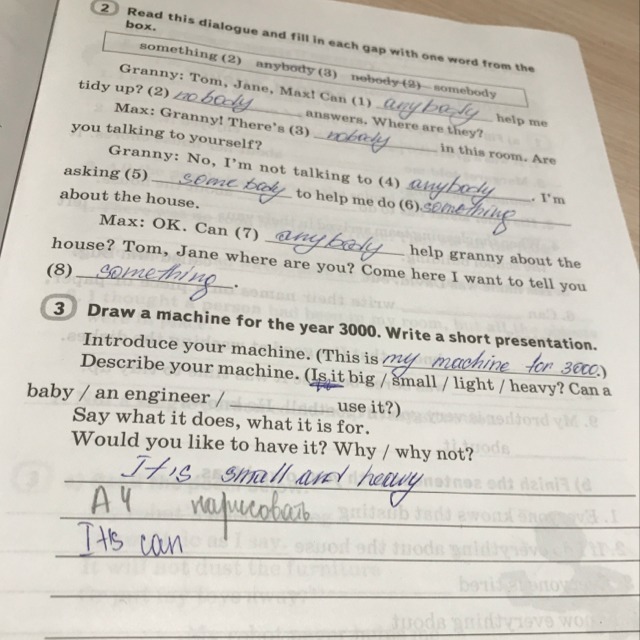 2 Read this dialogue and fill in each gap with one word from the
box.
something (2) anybody (3) nobody (2) somebody
Granny: Tom, Jane, Max! Can (1) anybody help me
tidy up? (2) nobody answers. Where are they?
Max: Granny! There's (3) nobody in this room. Are
you talking to yourself?
Granny: No, I'm not talking to (4) anybody. I'm
asking (5) somebody to help me do (6) something
about the house.
Max: OK. Can (7) anybody help granny about the
house? Tom, Jane where are you? Come here I want to tell you
(8) something.
3 Draw a machine for the year 3000. Write a short presentation.
Introduce your machine. (This is my machine for 3000.)
Describe your machine. (Is it big / small / light / heavy? Can a
baby / an engineer / use it?)
Say what it does, what it is for.
Would you like to have it? Why / why not?
It is small and heavy
A4 нарисовать
Its can